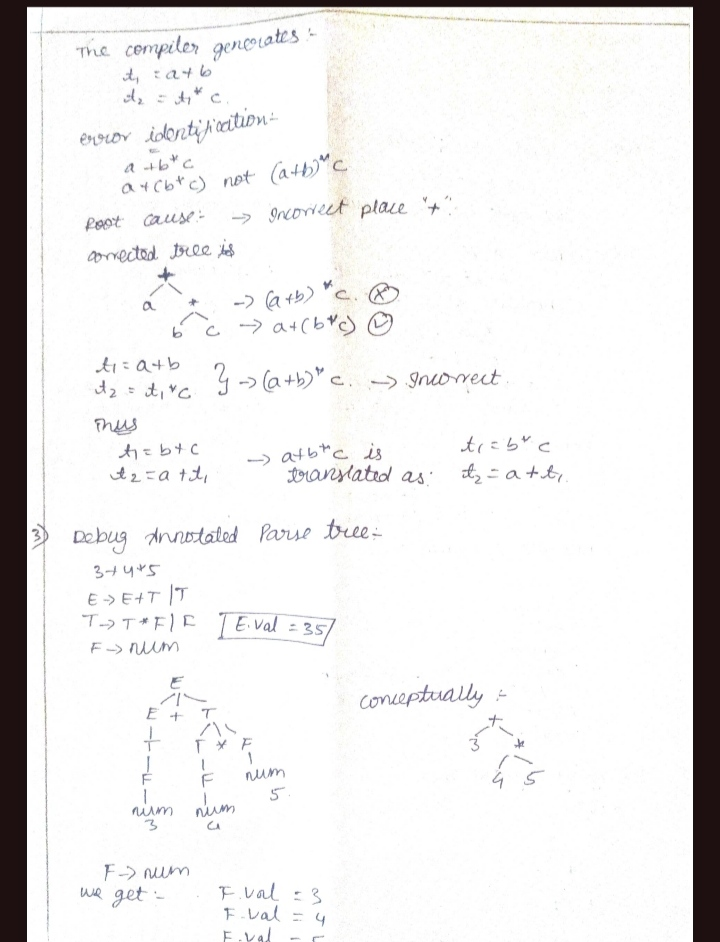 The compiler generates :-
t1 = a+b
t2 = t1* c.
error identification:-
a +b*c
a+(b*c) not (a+b)*c
Root cause:- → Incorrect place "+".
corrected tree is
+
a * → (a+b) *c. ⊗
b c → a+(b*c) ✓
t1 = a+b
t2 = t1*c } → (a+b)* c. → Incorrect.
Thus
t1 = b+c → a+b*c is t1 = b* c
t2 = a +t1 translated as: t2 = a + t1.
3) Debug Annotated Parse tree:-
3+4*5
E → E+T | T
T → T * F | F E.val = 35
F → num
E conceptually :-
E + T +
T T * F 3 *
F F num 4 5
num num 5.
3 4
F → num
we get :- F.val = 3
F.val = 4
F.val = 5